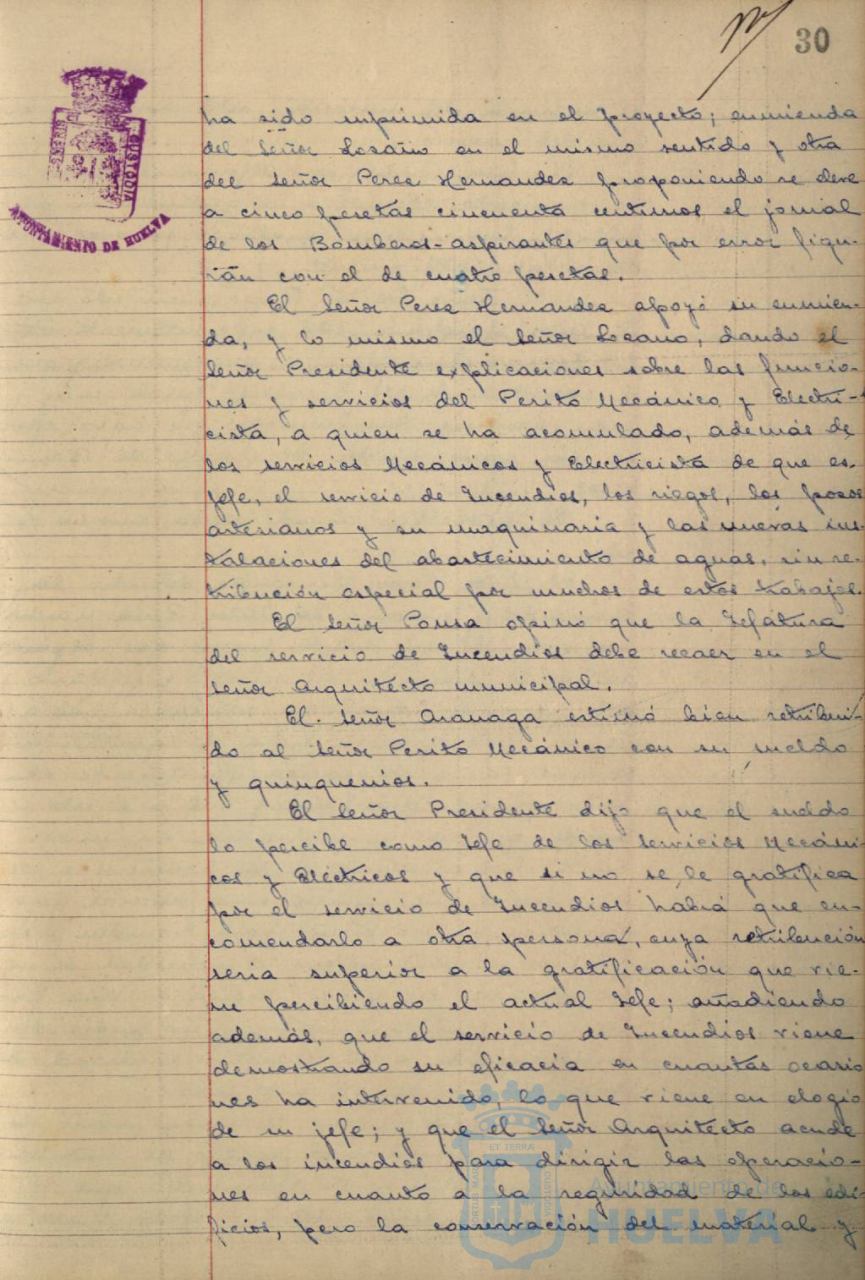 30
ha sido suprimida en el proyecto; enmienda
del Señor Lozano en el mismo sentido y otra
del Señor Perez Hernandez proponiendo se eleve
a cinco pesetas cincuenta centimos el jornal
de los Bomberos-aspirantes que por error figu-
rán con el de cuatro pesetas.
El Señor Perez Hernandez apoyó su enmien-
da, y lo mismo el Señor Lozano, dando el
Señor Presidente explicaciones sobre las funcio-
nes y servicios del Perito Mecánico y Electri-
cista, a quien se ha acomulado, además de
los servicios Mecánicos y Electricista de que es
Jefe, el servicio de Incendios, los riegos, los pozos
artesianos y su maquinaria y las nuevas ins-
talaciones del abastecimiento de aguas, sin re-
tribución especial por muchos de estos trabajos.
El Señor Ponsa opinó que la Jefatura
del servicio de Incendios debe recaer en el
Señor Arquitecto municipal.
El Señor Aranaga estimó bien retribui-
do al Señor Perito Mecánico con su sueldo
y quinquenios.
El Señor Presidente dijo que el sueldo
lo percibe como Jefe de los servicios Mecáni-
cos y Eléctricos y que si no se le gratifica
por el servicio de Incendios habrá que en-
comendarlo a otra persona, cuya retribución
seria superior a la gratificación que vie-
ne percibiendo el actual Jefe; añadiendo
además, que el servicio de Incendios viene
demostrando su eficacia en cuantas ocasio
nes ha intervenido, lo que viene en elogio
de su jefe; y que el Señor Arquitecto acude
a los incendios para dirigir las operacio-
nes en cuanto a la seguridad de los edi-
ficios, pero la conservación del material y
AYUNTAMIENTO DE HUELVA
CUSTODIA
Ayuntamiento de
HUELVA